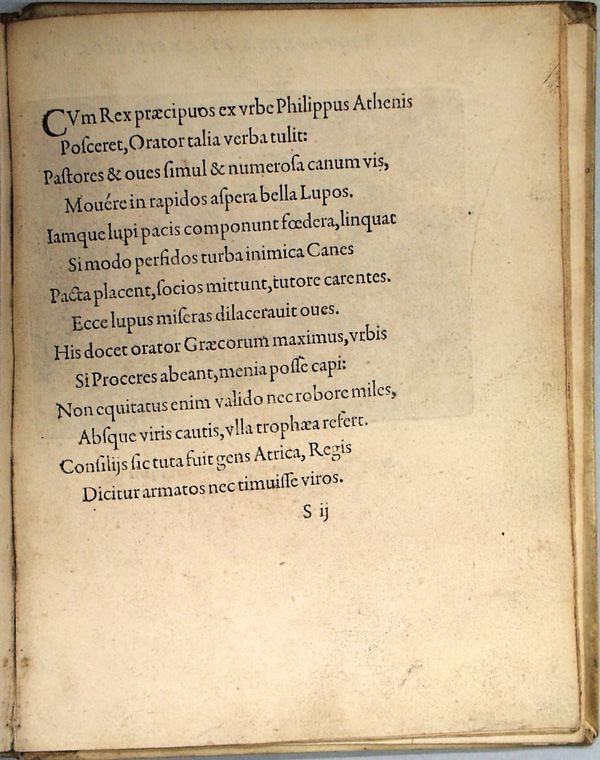 CVm Rex præcipuos ex vrbe Philippus Athenis
Poſceret, Orator talia verba tulit:
Paſtores & oues ſimul & numeroſa canum vis,
Mouére in rapidos aſpera bella Lupos.
Iamque lupi pacis componunt fœdera, linquat
Si modo perfidos turba inimica Canes
Pacta placent, ſocios mittunt, tutore carentes.
Ecce lupus miſeras dilacerauit oues.
His docet orator Græcorum maximus, vrbis
Si Proceres abeant, menia poſſe capi:
Non equitatus enim valido nec robore miles,
Abſque viris cautis, vlla trophæa refert.
Conſilijs ſic tuta fuit gens Attica, Regis
Dicitur armatos nec timuiſſe viros.
S ij